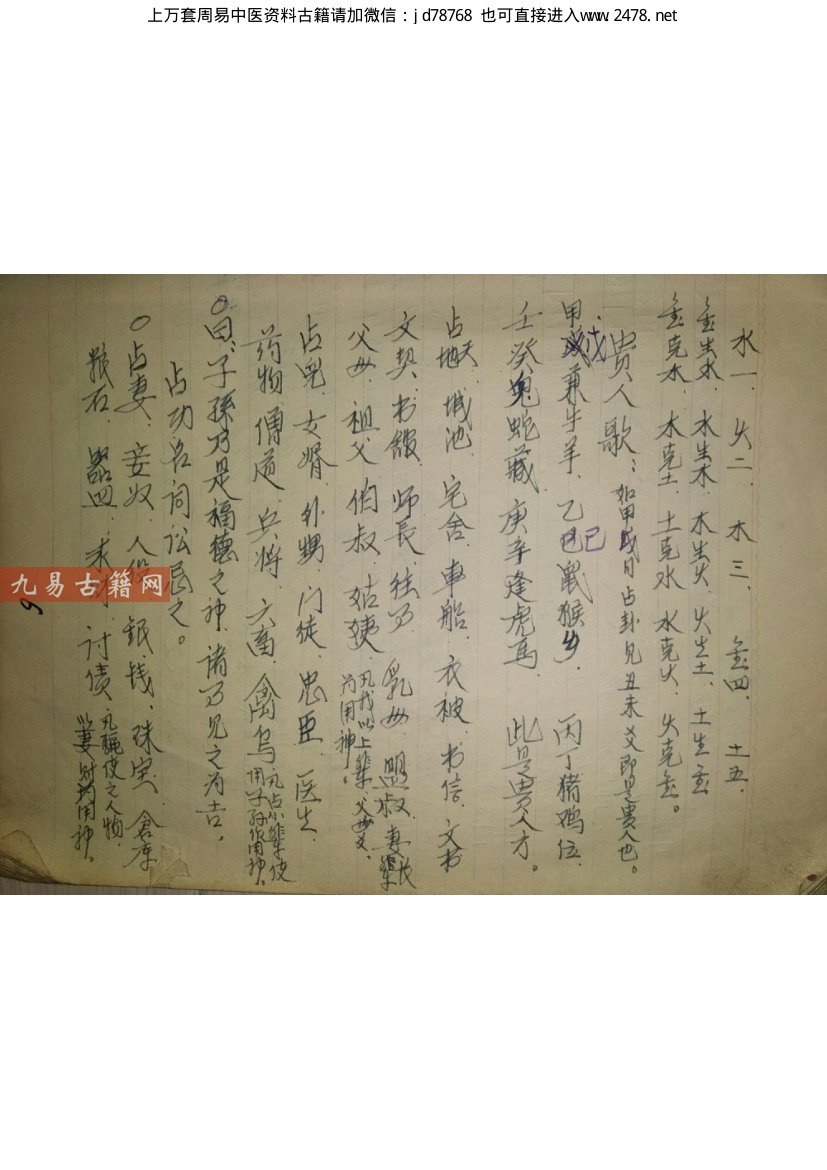 上万套周易中医资料古籍请加微信：jd78768 也可直接进入www.2478.net
水一、火二、木三、金四、土五、
金生水、水生木、木生火、火生土、土生金
金克木、木克土、土克水、水克火、火克金。
贵人歌：如甲戊日占卦见丑未爻即是贵人也。
甲戊兼牛羊、乙己鼠猴乡、丙丁猪鸡位、
壬癸兔蛇藏、庚辛逢虎马、此是贵人才。
占天地、城池、宅舍、車船、衣被、书信、文书
文契、书馆、师长、乳母、盟叔、妻
父母、祖父、伯叔、姑姨、凡我以上辈、父母爻、
为用神。
占兒、女婿、外甥、门徒、忠臣、医生
药物、僧道、兵将、六畜、禽鸟、凡占小辈
用子孙作用神。
曰、子孫乃是福德之神、诸
见之为吉，
占功名词讼忌之。
占妻、妾奴、人
銀、钱、珠宝、倉库
粮石、器皿、求
讨债、
人物、
以妻财为用神。
九易古籍网
9